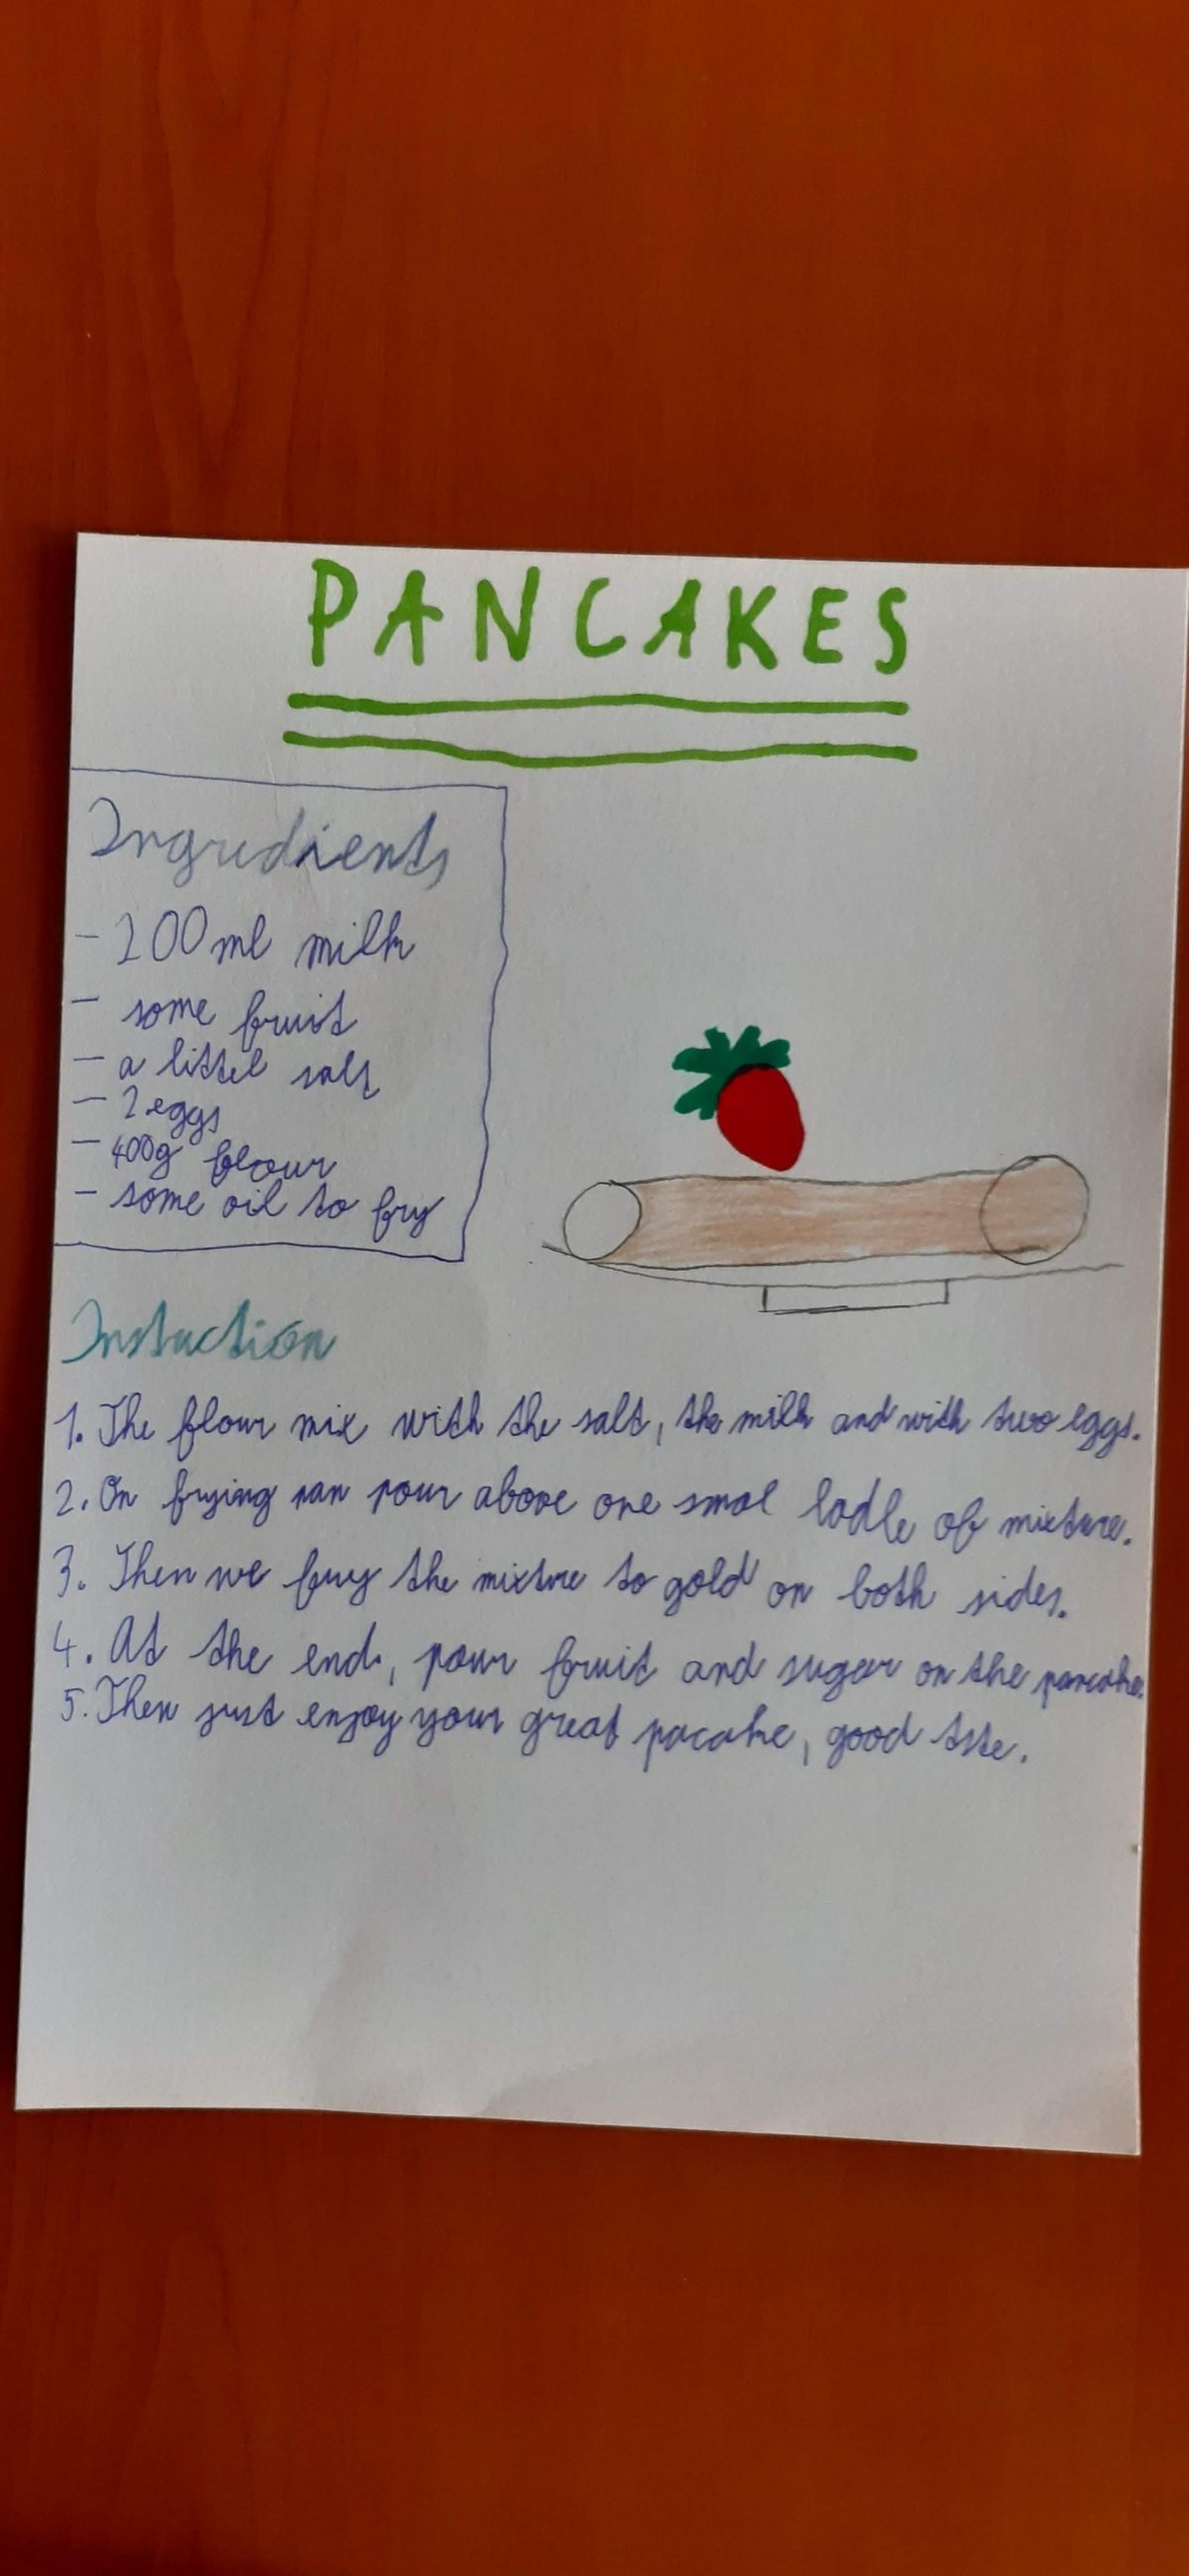 PANCAKES
Ingredients
- 200ml milk
- some fruit
- a littel salt
- 2 eggs
- 400g flour
- some oil to fry
Instuction
1. The flour mix with the salt, the milk and with two eggs.
2. On frying pan pour above one smal ladle of mixture.
3. Then we fry the mixture to gold on both sides.
4. At the end, pour fruit and sugar on the pancake.
5. Then just enjoy your great pacake, good tste.